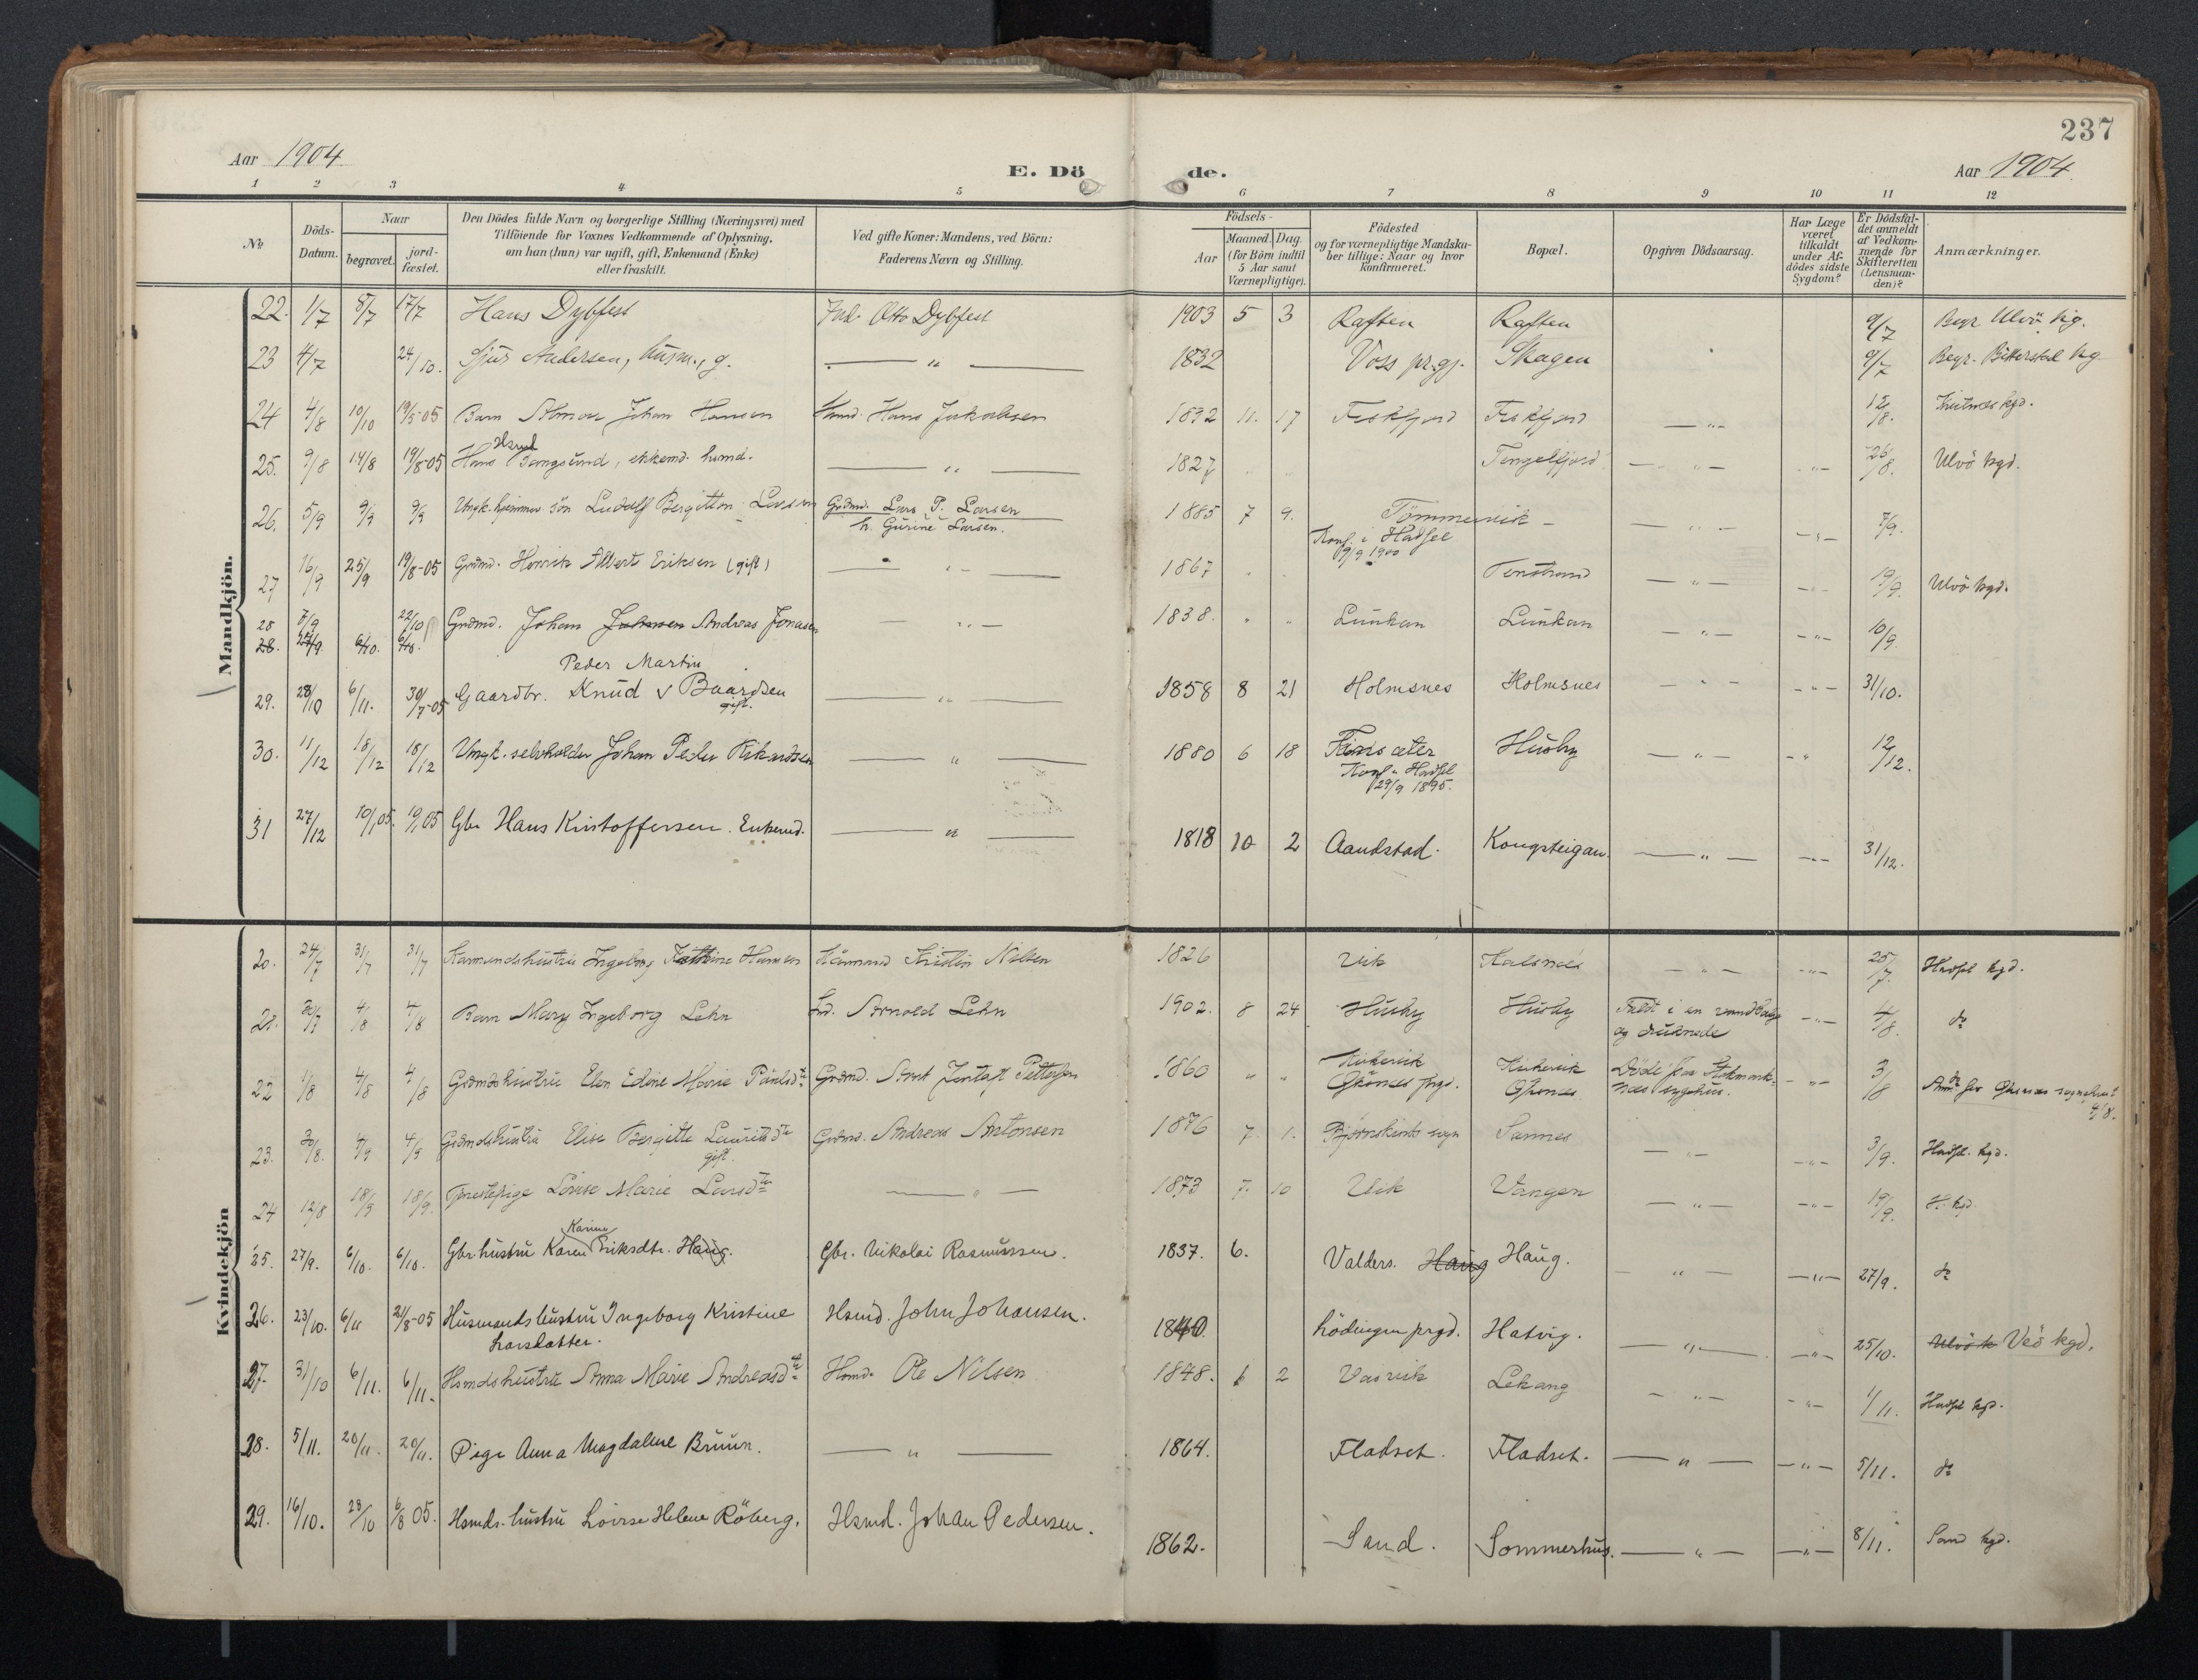 237
Aar 1904
E. Dö de.
Aar 1904
1 2 3 4 5 6 7 8 9 10 11 12
№
Döds-Datum.
Naar
begravet.
jord-fæstet.
Den Dödes fulde Navn og borgerlige Stilling (Næringsvei) med
Tilföiende for Voxnes Vedkommende af Oplysning,
om han (hun) var ugift, gift, Enkemand (Enke)
eller fraskilt.
Ved gifte Koner: Mandens, ved Börn:
Faderens Navn og Stilling.
Födsels-
Aar
Maaned. Dag.
(for Börn indtil
5 Aar samt
Værnepligtige).
Födested
og for værnepligtige Mandska-
ber tillige: Naar og hvor
konfirmeret.
Bopæl.
Opgiven Dödsaarsag.
Har Læge
været
tilkaldt
under Af-
dödes sidste
Sygdom?
Er Dödsfal-
det anmeldt
af Vedkom-
mende for
Skifteretten
(Lensman-
den)?
Anmærkninger.
Mandkjön.
22. 1/7 8/7 17/7 Hans Dybfest Otto Dybfest 1903 5 3 Raften Raften 9/7 Begr. Ulvö kg.
23 4/7 24/10. Sjur Andersen, husm., g. — " — 1832 Voss pr.gj. Skagen 9/7 Begr. Bitterstad kg
24 4/8 10/10 19/5-05 Barn Almar Johan Hansen Hans Jakobsen 1892 11. 17 Fiskfjord Fiskfjord — " — 12/8. kgd.
25. 9/8 14/8 19/8-05 Hans enkemd. husmd. — " — 1827 Tengelfjord — " — " 26/8. Ulvö kgd.
26. 5/9 9/9 9/9 Ungk. sön Ludolf Bergiton Larsen Grdmd. Lars P. Larsen
h. Gurine Larsen.
1885 7 9. Tömmervik — " — 7/9.
Konf. i Hadsel
9/9 1900
27 16/9 25/9 19/8-05 Grdmd. Henrik Albert Eriksen (gift) — " — 1867 Tenstrand — " — 19/9. Ulvö kgd.
28 8/9 22/10 Grdmd. Johan Andreas Jonasen — " — 1838. Lunkan Lunkan — " — " — 10/9.
28. 25/9 6/10. 6/10.
Peder Martin
29. 28/10 6/11. 30/7-05 Gaardbr. Knud v Baardsen — " — 1858 8 21 Holmsnes Holmsnes — " — " — 31/10.
gift.
30. 11/12 18/12 18/12 Ungk. selvholder Johan Peder Rikardsen — " — 1880 6 18 Finsæter Husby — " — " 12/12.
Konf. i Hadsel
29/9 1895.
31 27/12 10/1 05. 19/1 05 Gbr Hans Kristoffersen. Enkemd. — " — 1818 10 2 Aandstad. Kongsteigan. — " — " — 31/12.
Kvindekjön
20. 24/7 31/7 31/7 Kaarmandshustru Ingeborg Kathrine Hansen Kårmand Kristen Nilsen 1826 Vik Kalsnes — " — " — 25/7. Hadsel kgd.
21. 30/7 4/8 4/8 Barn Mary Ingeborg Lehn Arnold Lehn 1902. 8 24 Husby Husby Faldt i en vandbalje — " — 4/8. do
og druknede
22 1/8 4/8 4/8 Grdmdshustru Elen Edine Marie Paulsdtr Grdmd. Arnt Jentoft Pettersen 1860 " " Kirkevik Kirkevik Döde paa Stokmark- — " — 3/8
Öksnes prgd. Öksnes næs sygehus.
4/8.
23. 30/8. 4/9 4/9 Grdmdshustru Elise Bergitte Lauritsdtr Grdmd. Andreas Antonsen 1876 7. 1. Bjørnskinds sogn Sannes — " — " — 3/9. Hadsel. kgd.
gift.
24 12/8 18/9 18/9. Tjenestepige Lovise Marie Larsdtr — " — 1873 7. 10 Vik Vangen — " — " — 19/9. H. kgd.
Karine
25. 27/9. 6/10. 6/10. Gbr hustru Karen Eriksdtr. Haug. Gbr. Nikolai Rasmussen. 1837. 6. Valders. Haug Haug. — " — " — 27/9. do
26. 23/10. 6/11 21/8-05 Husmands hustru Ingeborg Kristine Hsmd. John Johansen. 1840. Lödingen prgd. Hatvig. — " — " — 25/10. Ulvö k Veö kgd.
Larsdatter.
27. 31/10 6/11. 6/11. Hsmdshustru Anna Marie Andreasdtr Hsmd. Ole Nilsen 1848. 6 2 Vasvik Lekang — " — " — 1/11. Hadsel kgd.
28. 5/11. 20/11. 20/11. Pige Anna Magdalene Bruun. — " — 1864. Fladset. Fladset. — " — " — 5/11. do
29. 16/10. 28/10 6/8 05. Hsmds. hustru Lovise Helene Röberg. Hsmd. Johan Pedersen. 1862. Sand. Sommerhus. — " — " — 8/11. Sand kgd.